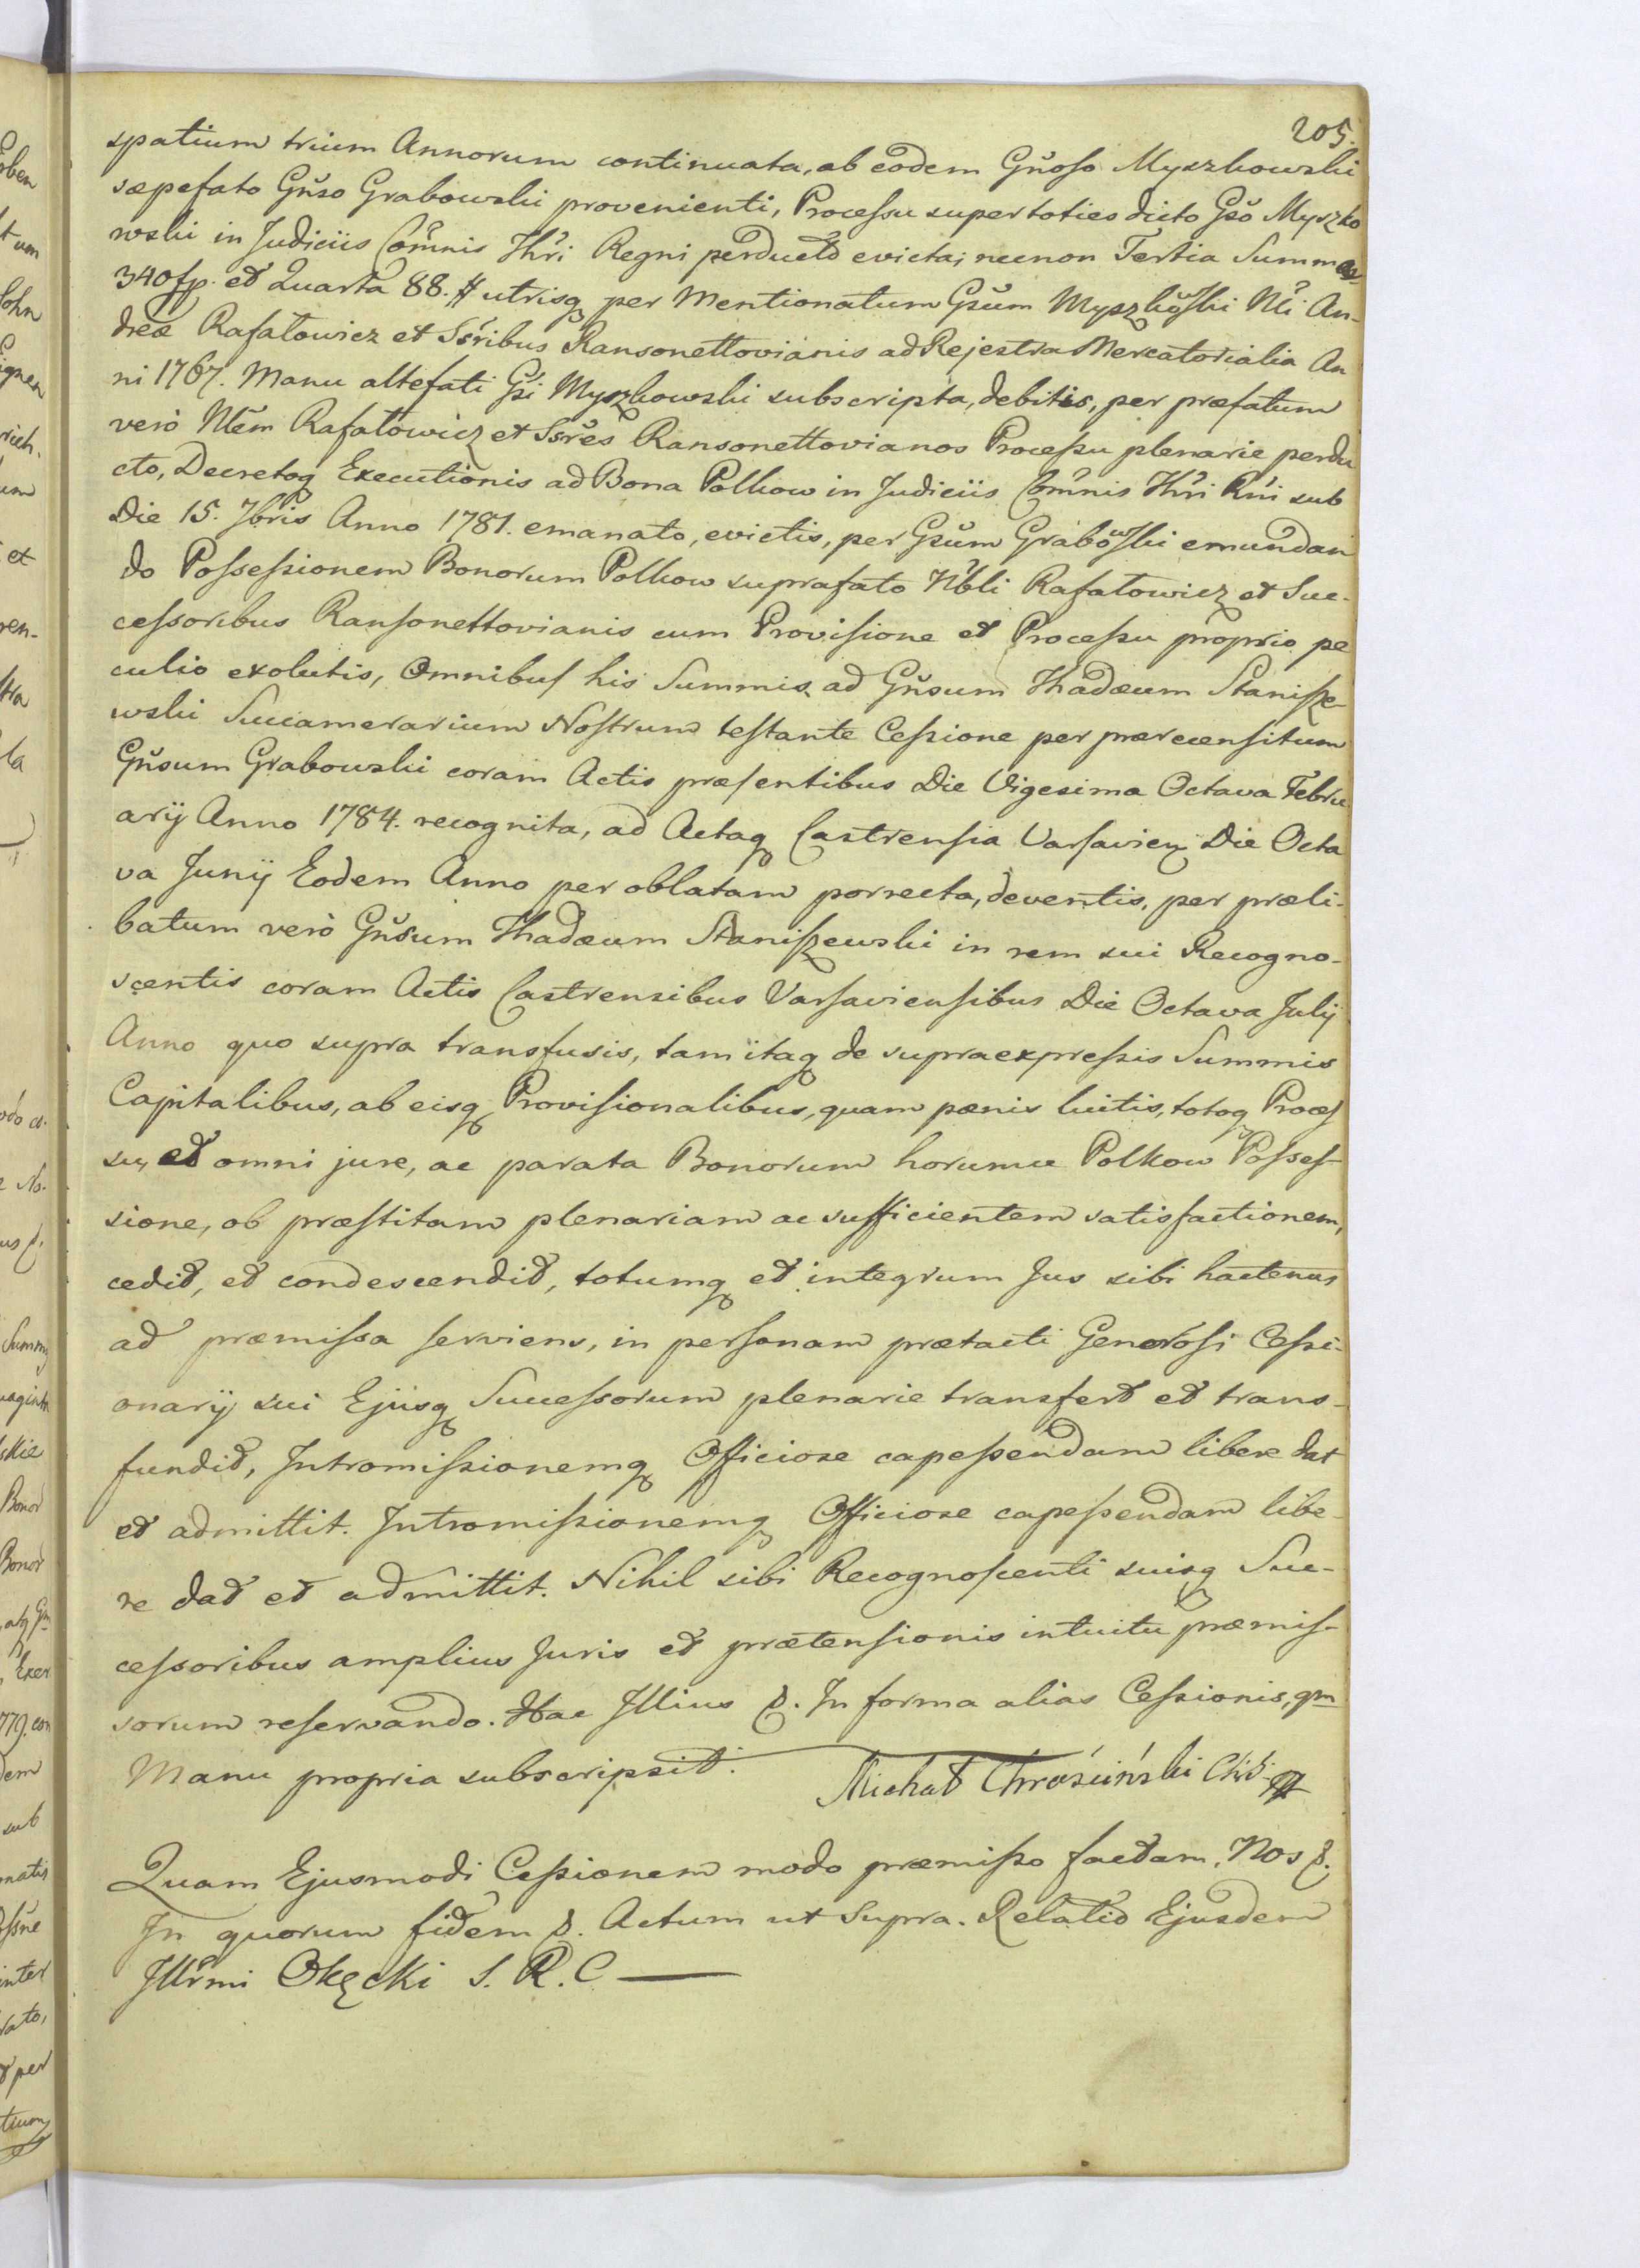 205.
spatium trium Annorum continuata, ab eodem Gñoso Myszkowski
sæpefato Gñso Grabowski provenienti, Processu super toties dicto Gsõ Myszko
wski in Judiciis Com̃nis Thr̃i Regni perducto evicta; necnon Tertia Summa
340 fp. et Quarta 88. # utrisq per Mentionatum Gsũm Myszkowski Nli An-
dreæ Rafałowicz et Ssr̃ibus Ransonettovianis ad Rejestra Mercatorialia An
ni 1767. Manu altefati Gsi Myszkowski subscripta, debitis, per præfatum
verò Nlem̃ Rafałowicz et Ssr̃es Ransonettovianos Processu plenarie perdu
cto, Decretoq Executionis ad Bona Polkow in Judiciis Com̃nis Thr̃i Rñi sub
Die 15. 7bris Anno 1781. emanato, evictis, per Gsũm Grabowski emundan
do Possessionem Bonorum Polkow suprafato Nbli Rafałowicz et Suc-
cessoribus Ransonettovianis cum Provisione et Processu proprio pe
culio exolutis, Omnibus his Summis ad Gñsum Thadæum Stanisze-
wski Succamerarium Nostrum testante Cessione per præreccensitum
Gñsum Grabowski coram Actis præsentibus Die Vigesima Octava Febru
arij Anno 1784. recognita, ad Actaq Castrensia Varsavien Die Octa
va Junij Eodem Anno per oblatam porrecta, deventis, per præli-
batum verò Gñsum Thadæum Staniszewski in rem sui Recogno-
scentis coram Actis Castrensibus Varsaviensibus Die Octava Julij
Anno quo supra transfusis, tam itaq de supraexpressis Summis
Capitalibus, ab eisq Provisionalibus, quam pænis luitis, totoq Proces
su, et omni jure, ac parata Bonorum horumce Polkow Posses-
sione, ob præstitam plenariam ac sufficientem satisfactionem,
cedit, et condescendit, totumq et integrum Jus sibi hactenus
ad præmissa serviens, in personam prætacti Generosi Cessi-
onarij sui Ejusq Successorum plenarie transfert et trans-
fundit, Intromissionemq Officiose capessendam libere dat
et admittit. Intromissionemq Officiose capessendam libe-
re dat et admittit. Nihil sibi Recognoscenti suisq Suc-
cessoribus amplius Juris et prætensionis intuitu præmis-
sorum reservando. Hac Illius &. In forma alias Cessionis, qm
Manu propria subscripsit. Michał Chrościński
Quam Ejusmodi Cessionem modo præmisso factam. Nos &.
In quorum fidem &. Actum ut Supra. Relatio Ejusdem
Illr̃mi Okęcki S. R. C